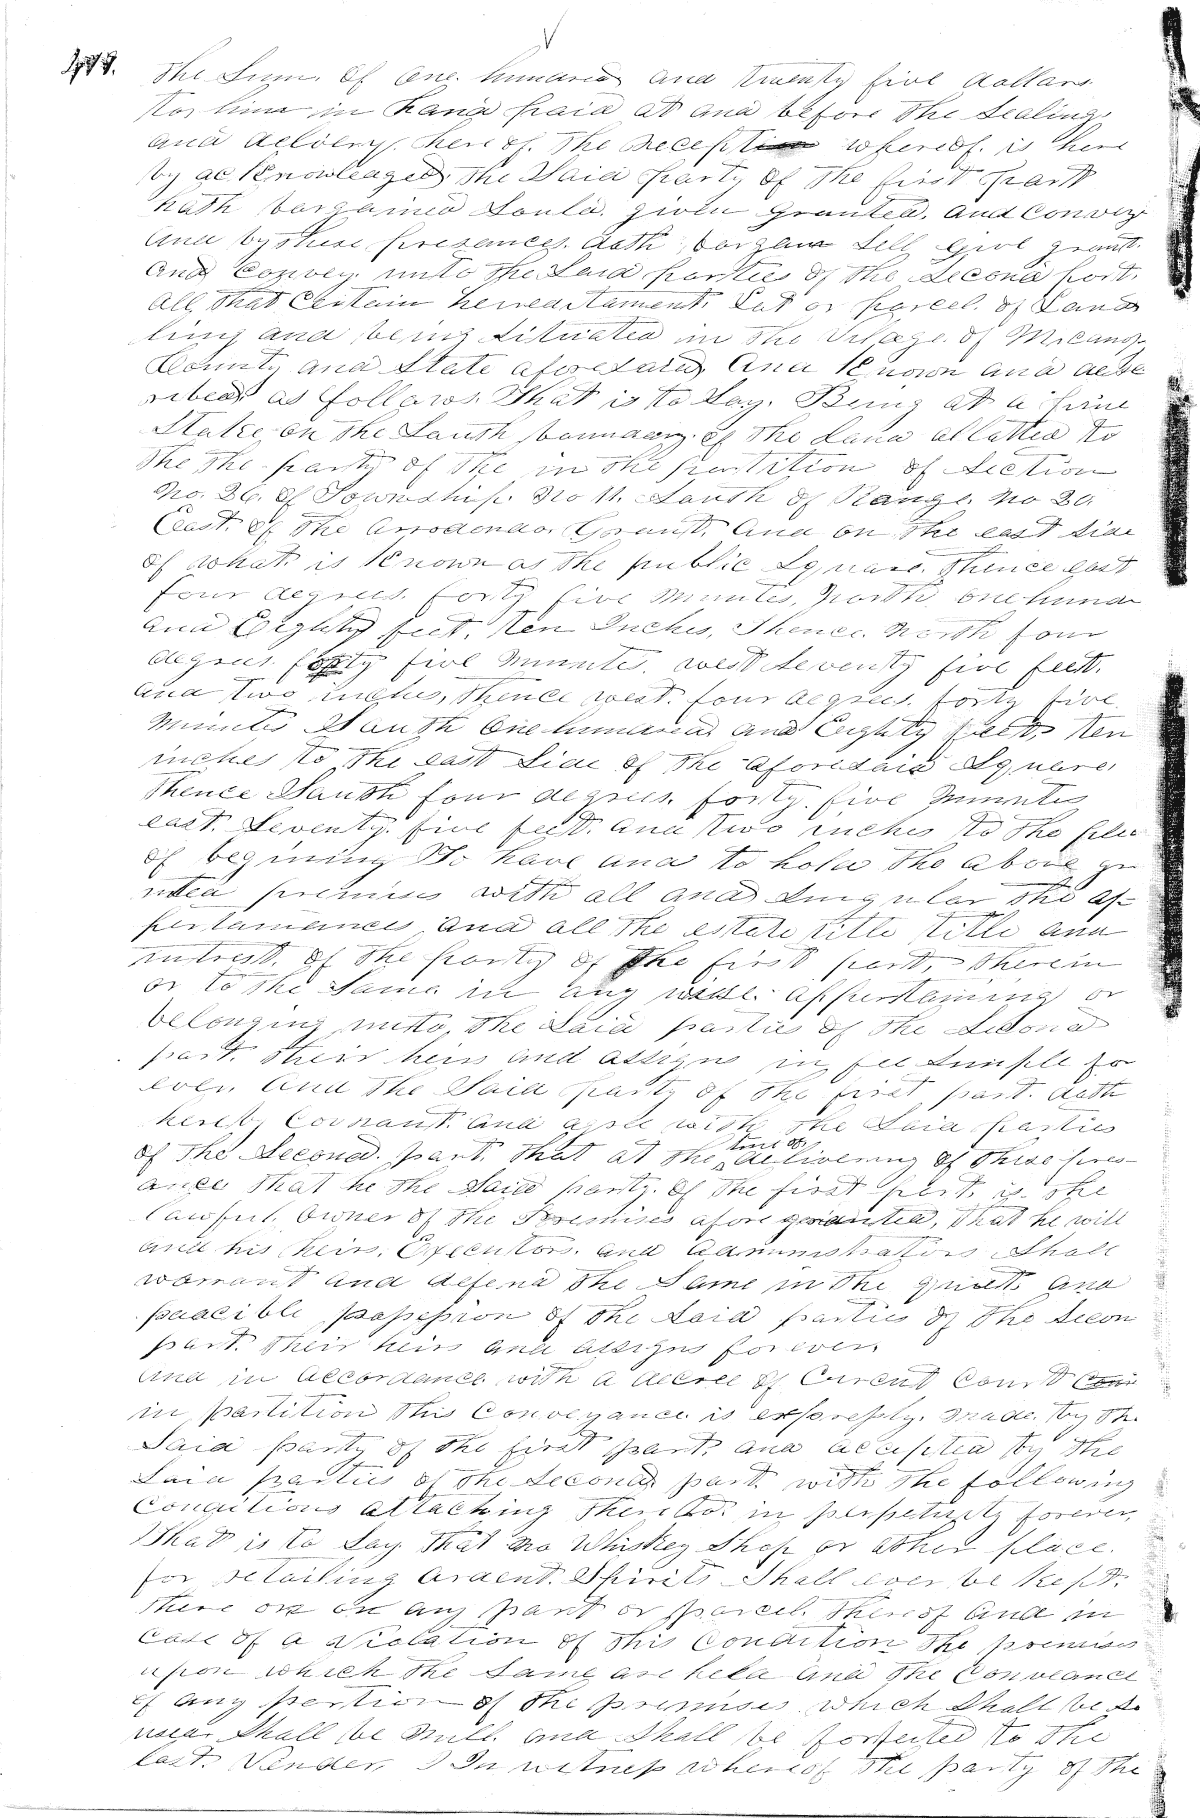 The Sum. of One. hundred and twenty five dollars
to, him in hand paid at and before the Sealing
and delivery. hereof. The receipt whereof. is here
by acknowledged, the Said party of the first part
hath bargained Sould. given granted. and Convey
and by these presances. doth bargan Sell give grant.
and Convey. unto the Said parties of the Second part.
all, that Certain herreditament. Lot or parcel. of Land
ling and being Situated in the Village of Micanopy
County and State aforesaid and Known and desc
ribed as follows. That is to Say. Being at a pine
Stake, on the South boundary. of the Land allatted to
the the party of the in the partition of Section
No. 26. of Township. No 11. South of Range. No 20.
East of the Arrodendo. Grant. and on the east Side
of what is Known as the public Square. Thence east
four degrees. forty five minutes. North one hund
and Eighty feet. ten Inches, Thence. North four
degrees. forty five minutes. west Seventy five feet.
and two inches, Thence west. four degrees. forty five
minutes South One hundred and Eighty feet, ten
inches to the east Side of the aforesaid Square,
Thence South four degrees. forty. five minutes
east. Seventy. five feet. and two inches to the plac
of begining To have and to hold the above gra
nted premises with all and Singular the ap-
pertainances and all the estate title title and
intrest. of the party of the first part, therein
or to the Same in any wise. appertaining or
belonging unto, the Said parties of the Second
part. their heirs and assigns in fee Simple for
ever. and the Said party of the first part. doth
hereby Covnant. and agree with the Said parties
of the Second. part. that at the time of delivering of these pres-
ance that he the Said party. of the first part. is the
lawful. Owner of the Premises afore granted. That he will
and his heirs. Executors. and Administrators Shall
warrant and defend the Same in the quiet. and
peacible possession of the Said parties of the Secon
part. Their heirs and assigns forever.
and in accordance with a decree of Curcut Court
in partition This Conveyance is expressly. made. by the
Said party of the first part. and accepted by the
Said parties of the Second part. with the following
Conditions attaching thereto. in perpetuity forever,
That is to Say That no Whiskey Shop or other place.
for retailing ardent. Spirits Shall ever be Kept.
there on or on any part or parcel. thereof and in
Case of a Violation of this Condition the premises
upon which the Same are held and the Conveance
of any portion of the premises which Shall be So
used Shall be null. and Shall be forfeited to the
last. Vender, In witness whereof the party of the